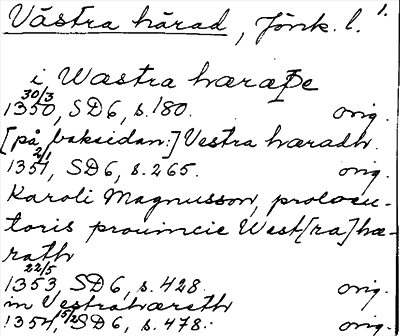 Västra härad, Jönk. l. 1.
i Wæstra hæraþe
30/3
1350, SD6, s. 180. orig.
[på baksidan:] Vestra hæradh.
2/1
1351, SD6, s. 265. orig.
Karoli Magnusson, prolocu-
toris prouincie West[ra] hæ-
rath
22/5
1353, SD6, s. 428. orig.
in Vestrahæreth
15/2
1354, SD6, s. 478. orig.